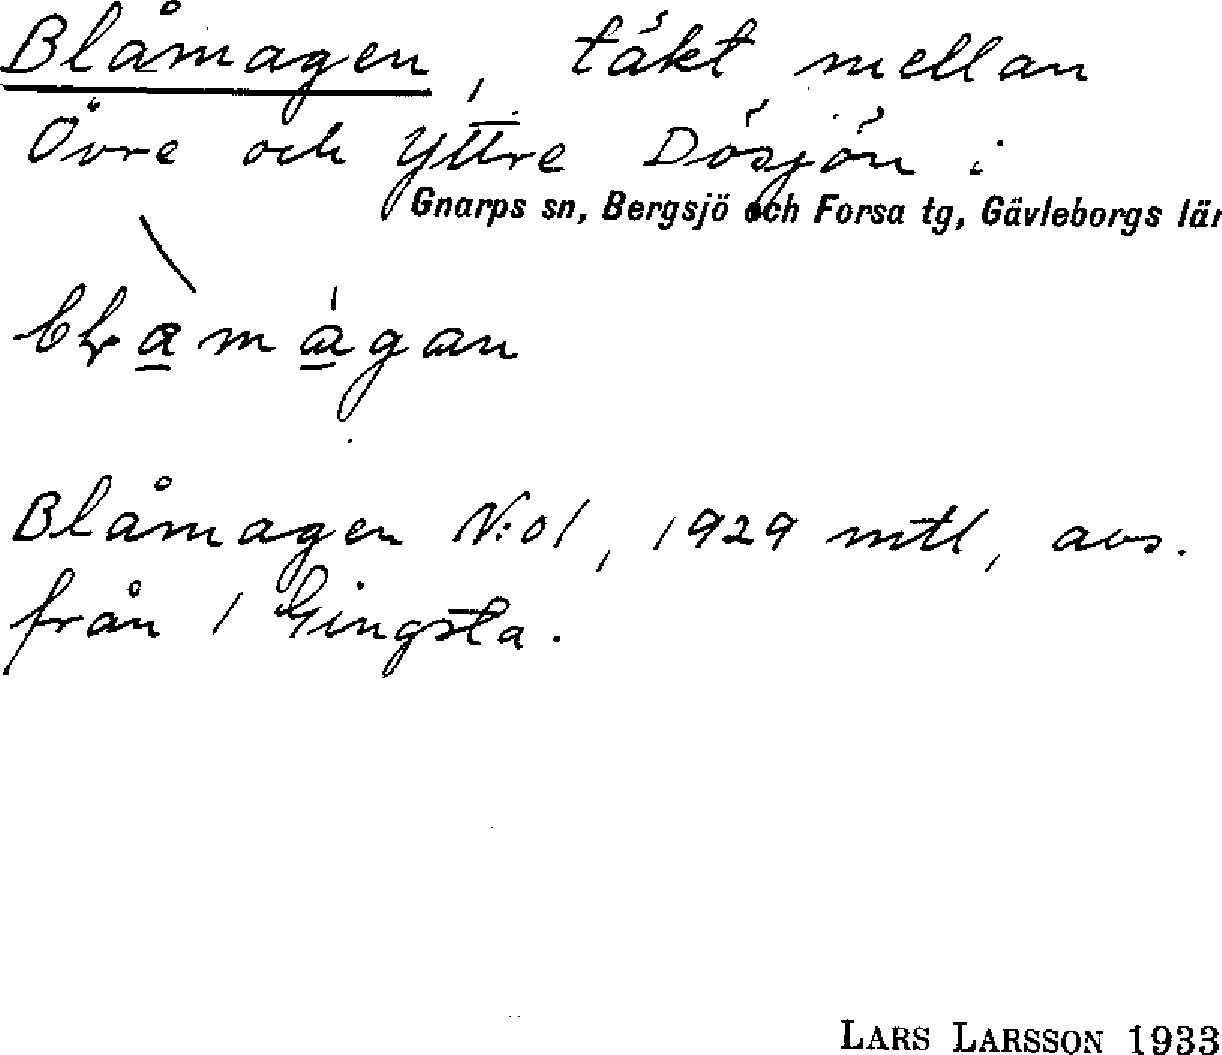 Blåmagen, täkt mellan
Övre och Yttre Dösjön i
Gnarps sn, Bergsjö och Forsa tg, Gävleborgs län
Blåmagen N:o 1, 1929 mtl, avs.
från 1 Gingsta.
LARS LARSSON 1933